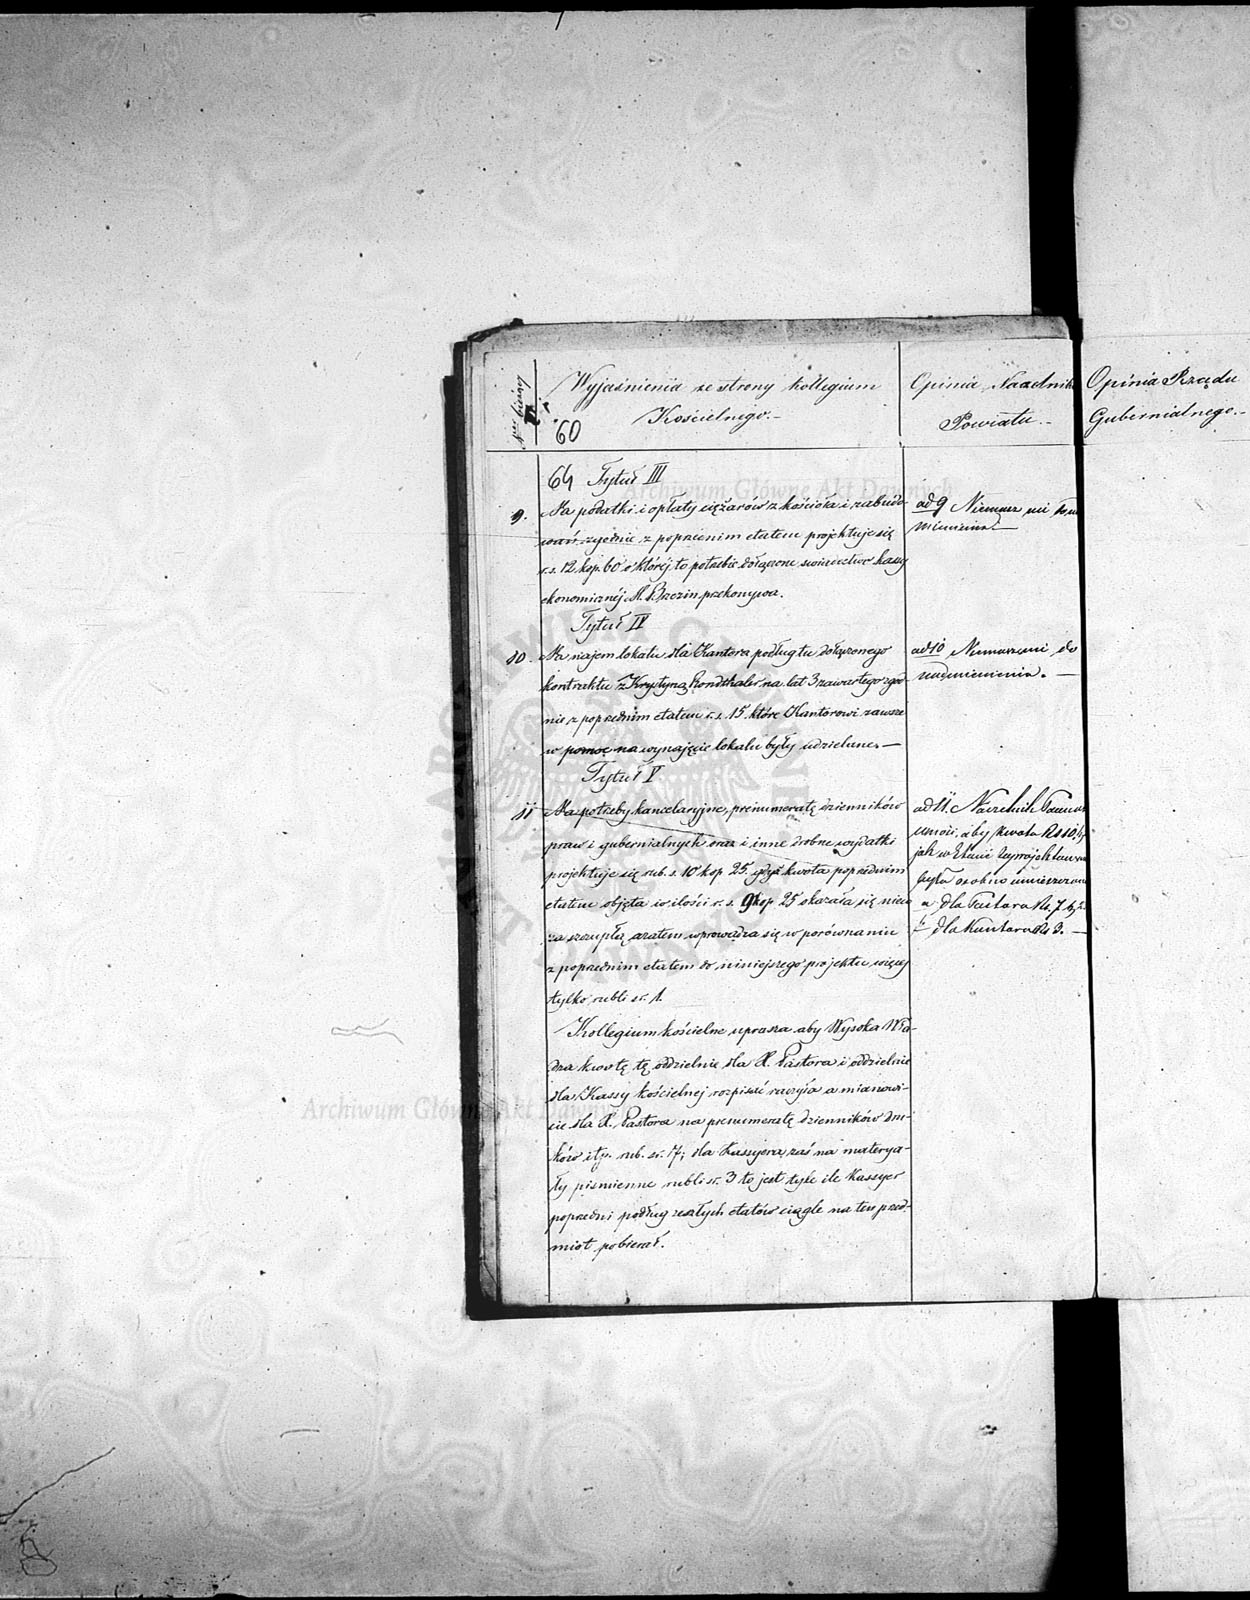 Nro bieżący
Wyjaśnienia ze strony kollegium
Kościelnego.-
60
Opinia Naczelnika
Powiatu.-
Opinia Rządu
Gubernialnego.-
64 Tytuł III
9. Na podatki i opłaty ciężarów z kościoła i zabudo-
wań zgodnie z poprzenim etatem projektuje się
r.s. 12 kop. 60 o której to potrzebie dołączone świadectwo kassy
ekonomicznéj M. Brzezin przekonywa.
ad 9 Niemasz nic do
Tytuł IV
10. Na najem lokalu dla Kantora podług tu dołączonego
kontraktu z Krystyną Rondthaler na lat 3 zawartego zgod-
nie z poprzednim etatem r.s. 15. które Kantorowi zawsze
w pomoc na wynajęcie lokalu były udzielane.—
ad 10 Niemasz nic do
nadmienienia.—
Tytuł V
11 Na potrzeby kancelaryjne, prenumeratę dzienników
praw i gubernialnych oraz i inne drobne wydatki
projektuje się rub. s. 10 kop 25. gdyż kwota poprzednim
etatem objęta w ilości r. s. 9 kop 25 okazała się nieco
za szczupłą, zatem wprowadza się w porównaniu
z poprzednim etatem do niniejszego projektu więcej
tylko rubli sr. 1.
Kollegium kościelne uprasza aby Wysoka Wła-
dza kwotę tę oddzielnie dla X. Pastora i oddzielnie
dla Kassy kościelnej rozpisać raczyła a mianowi-
cie dla X. Pastora na prenumeratę dzienników dru-
ków itp. rub. sr. 7; dla Kassyera zaś na materya-
ły piśmienne rubli sr. 3 to jest tyle ile Kassyer
poprzedni podług zeszłych etatów ciągle na ten przed-
miot pobierał.
ad 11. Naczelnik Powiatu
wnosi, aby kwota Rs 10,
jak w Etacie
była osobno umieszczona
a dla Pastora Rs. 7
dla Kantora Rs 3.—
Archiwum Główne Akt Dawnych
Archiwum Główne Akt Dawnych